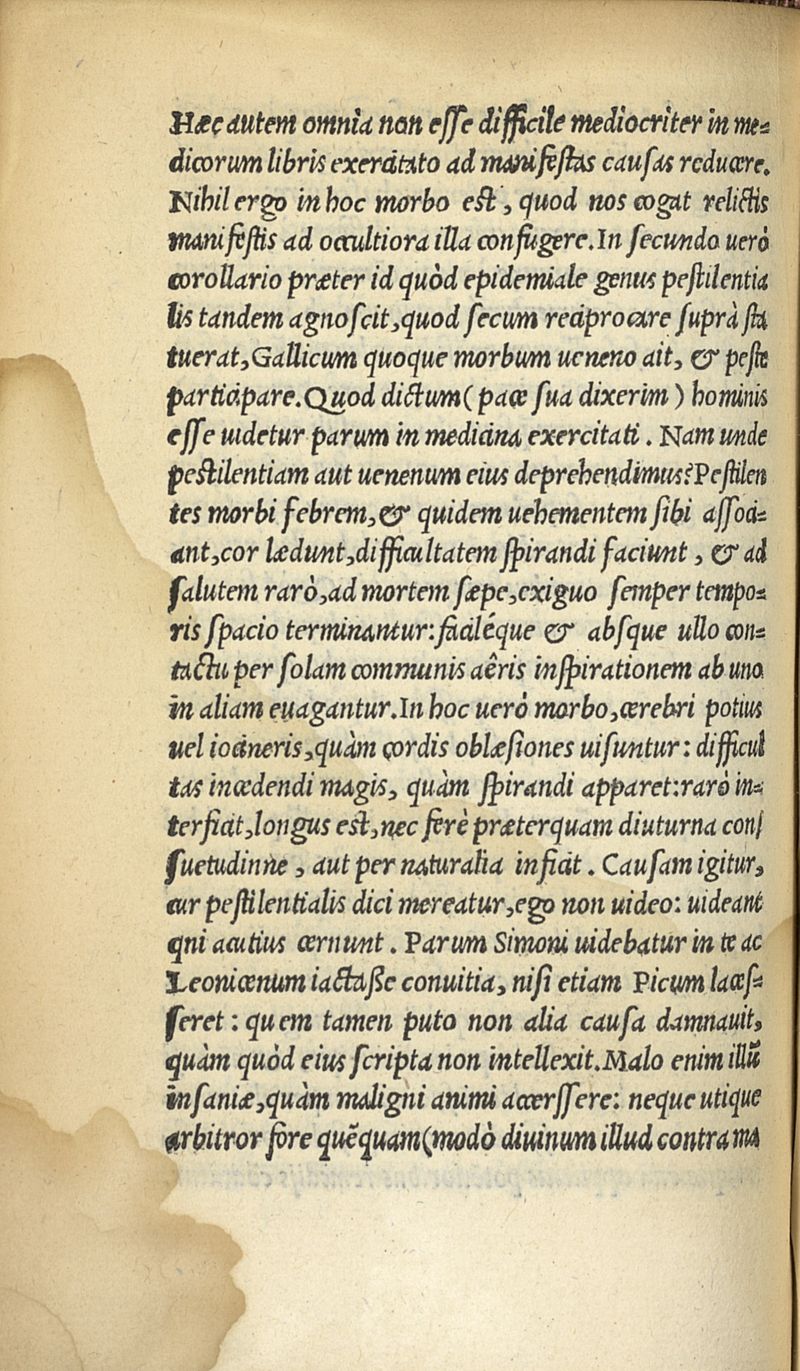 Hæc autem omnia non esse difficile mediocriter in me-
dicorum libris exercitato ad manifestas causas reducere.
Nihil ergo in hoc morbo est, quod nos cogat relictis
manifestis ad occultiora illa confugere. In secundo uerò
corollario præter id quòd epidemiale genus pestilentia
lis tandem agnoscit, quod secum reciprocare suprà sta
tuerat, Gallicum quoque morbum ueneno ait, & peste
participare. Quod dictum (pace sua dixerim) hominis
esse uidetur parum in medicina exercitati. Nam unde
pestilentiam aut uenenum eius deprehendimus? Pestilen
tes morbi febrem, & quidem uehementem sibi associ-
ant, cor lædunt, difficultatem spirandi faciunt, & ad
salutem rarò, ad mortem sæpe, exiguo semper tempo-
ris spacio terminantur: faciléque & absque ullo con-
tactu per solam communis aêris inspirationem ab uno
in aliam euagantur. In hoc uerò morbo, cerebri potius
uel iocineris, quàm cordis oblæsiones uisuntur: difficul
tas incedendi magis, quàm spirandi apparet: rarò in-
terficit, longus est, nec ferè præterquam diuturna con
suetudinne, aut per naturalia inficit. Causam igitur,
cur pestilentialis dici mereatur, ego non uideo: uideant
qni acutius cernunt. Parum Simoni uidebatur in te ac
Leonicenum iactasse conuitia, nisi etiam Picum laces-
seret: quem tamen puto non alia causa damnauit,
quàm quòd eius scripta non intellexit. Malo enim illũ
insaniæ, quàm maligni animi accerssere: neque utique
arbitror fore quẽquam (modò diuinum illud contra ma